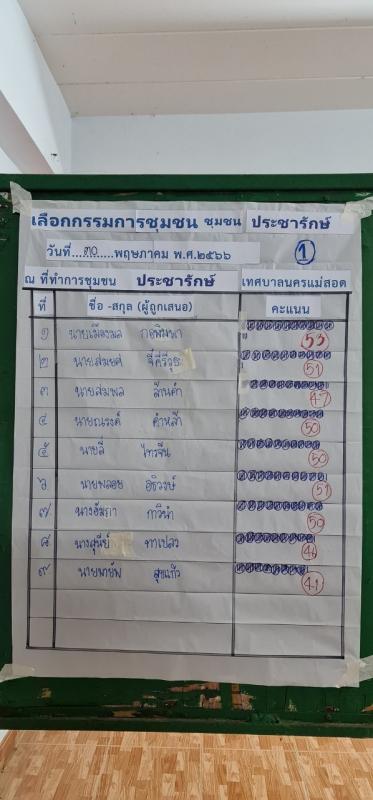 เลือกกรรมการชุมชน ชุมชน ประชารักษ์
วันที่....๓๐.....พฤษภาคม พ.ศ.๒๕๖๖ ①
ณ ที่ทำการชุมชน ประชารักษ์ เทศบาลนครแม่สอด
ที่ ชื่อ -สกุล (ผู้ถูกเสนอ) คะแนน
๑ นายเมืองมล 53
๒ นายสมยศ 51
๓ นายสมพล ล้านคำ 47
๔ นายณรงค์ คำหล้า 50
๕ นายสี ไทรจีน 50
๖ นายพลอย อิธิวงษ์ 51
๗ นางอัมภา กาวินำ 50
๘ นางสุนีย์ ทาเปลว 46
๙ นายพายัพ สุขแก้ว 41